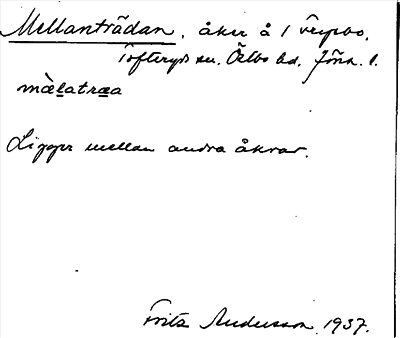 Mellanträdan, åker å 1 Vrepbo,
Tofteryds sn. Östbo hd. Jönk. l.
mæ̀latræa
Ligger mellan andra åkrar.
Fritz Andersson 1937.